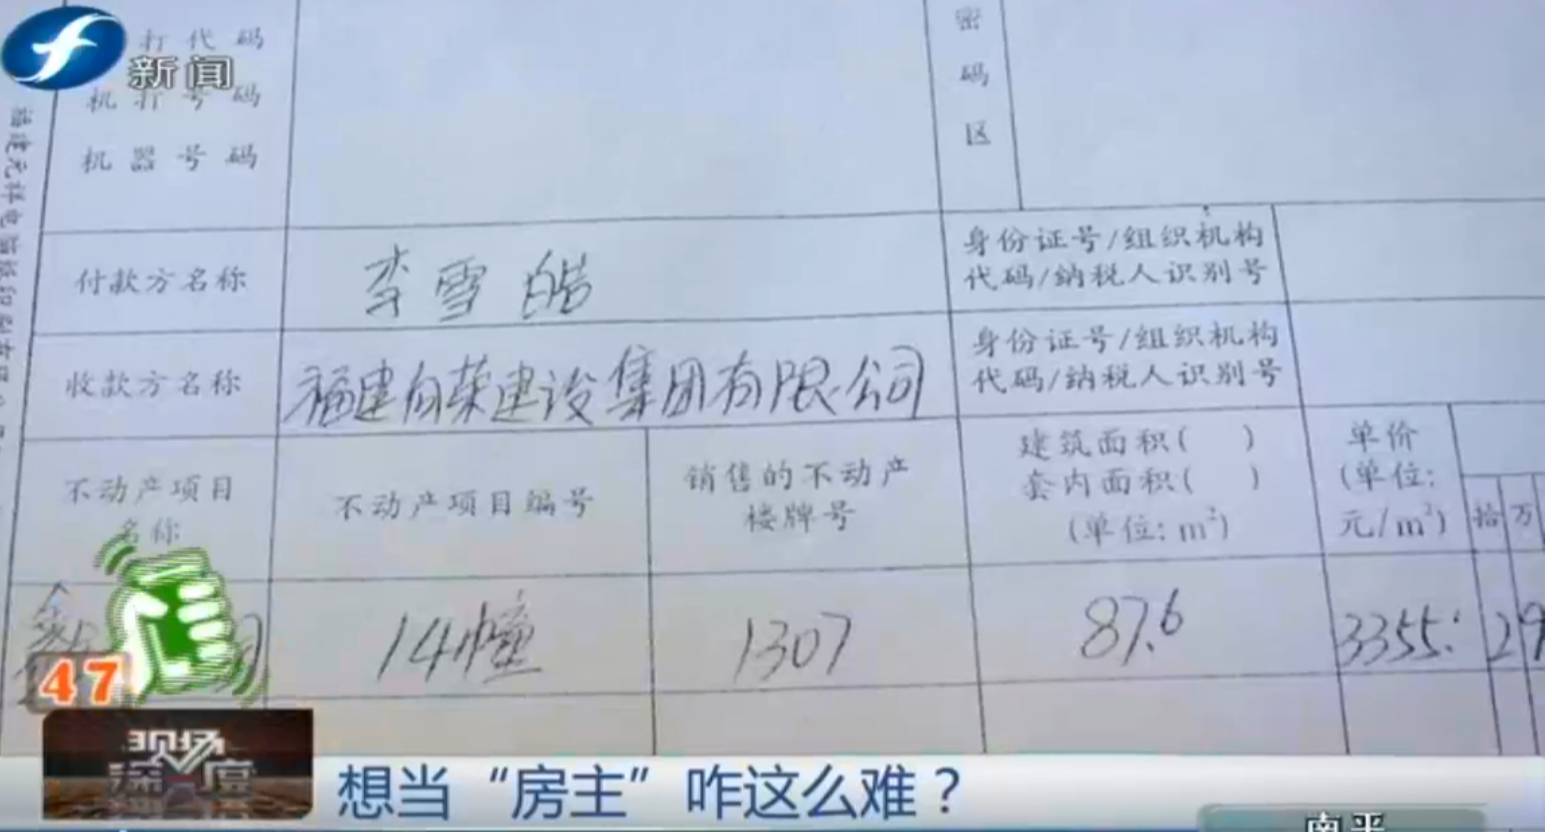 打代码
新闻
机打号码
机器号码
密
码
区
付款方名称
李雪皓
身份证号/组织机构
代码/纳税人识别号
收款方名称
福建自荣建设集团有限公司
身份证号/组织机构
代码/纳税人识别号
不动产项目
名称
不动产项目编号
销售的不动产
楼牌号
建筑面积( )
套内面积( )
(单位:m²)
单价
(单位:
元/m²)
拾
万
14幢
1307
87.6
3355.
29
47
现场
深一度
想当“房主”咋这么难？
南平